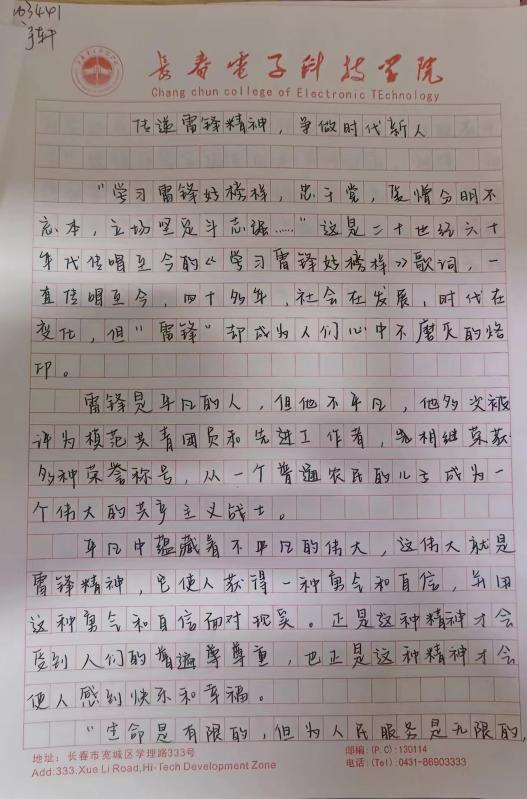 长春电子科技学院
Chang chun college of Electronic TEchnology
传递雷锋精神，争做时代新人
"学习雷锋好榜样，忠于党，爱憎分明不
忘本，立场坚定斗志强……"这是二十世纪六十
年代传唱至今的《学习雷锋好榜样》歌词，一
直传唱至今，四十多年，社会在发展，时代在
变化，但"雷锋"却成为人们心中不磨灭的烙
印。
雷锋是平凡的人，但他不平凡，他多次被
评为模范共青团员和先进工作者，相继荣获
多种荣誉称号，从一个普通农民的儿子成为一
个伟大的共产主义战士。
平凡中蕴藏着不平凡的伟大，这伟大就是
雷锋精神，它使人获得一种勇气和自信，并用
这种勇气和自信面对现实。正是这种精神才会
受到人们的普遍尊尊重，也正是这种精神才会
使人感到快乐和幸福。
"生命是有限的，但为人民服务是无限的，
地址：长春市宽城区学理路333号
邮编:(P.C):130114
Add:333.Xue Li Road,Hi-Tech Development Zone
电话:(Tel):0431-86903333